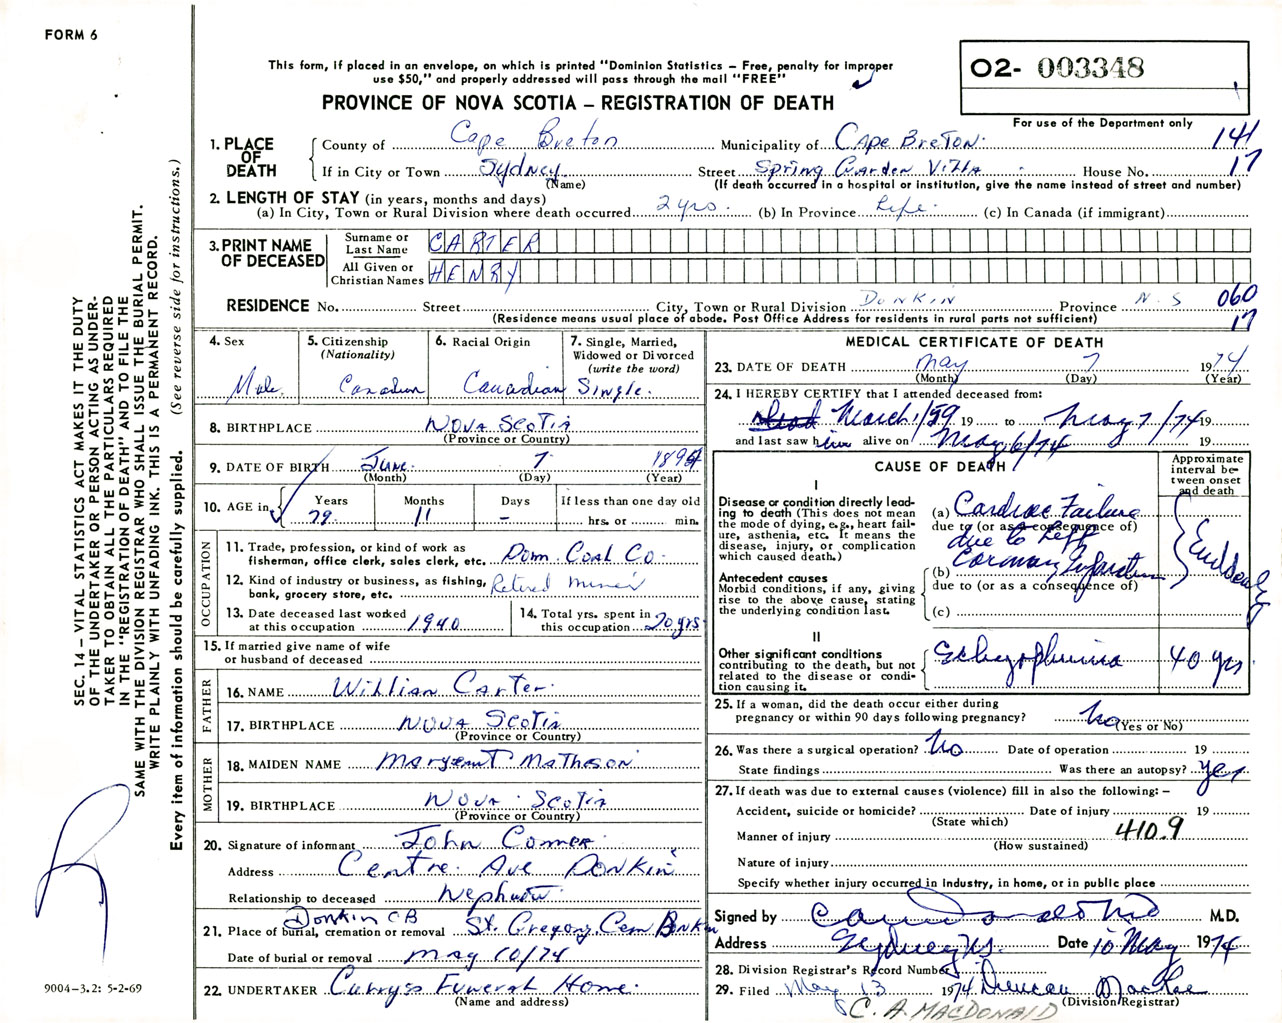 FORM 6
This form, if placed in an envelope, on which is printed "Dominion Statistics – Free, penalty for improper
use $50," and properly addressed will pass through the mail "FREE"
PROVINCE OF NOVA SCOTIA – REGISTRATION OF DEATH
O2- 003348
For use of the Department only
141
17
1. PLACE OF DEATH
County of Cape Breton Municipality of Cape Breton
If in City or Town Sydney Street Spring Garden Villa House No.
(Name) (If death occurred in a hospital or institution, give the name instead of street and number)
2. LENGTH OF STAY (in years, months and days)
(a) In City, Town or Rural Division where death occurred 2 yrs. (b) In Province Life. (c) In Canada (if immigrant)
3. PRINT NAME OF DECEASED
Surname or Last Name CARTER
All Given or Christian Names HENRY
RESIDENCE No. Street City, Town or Rural Division Donkin Province N.S 060
(Residence means usual place of abode. Post Office Address for residents in rural parts not sufficient) 17
4. Sex Male
5. Citizenship (Nationality) Canadian
6. Racial Origin Canadian
7. Single, Married, Widowed or Divorced (write the word) Single.
8. BIRTHPLACE Nova Scotia
(Province or Country)
9. DATE OF BIRTH June 7 1894
(Month) (Day) (Year)
10. AGE in Years 79 Months 11 Days – If less than one day old hrs. or min.
OCCUPATION
11. Trade, profession, or kind of work as
fisherman, office clerk, sales clerk, etc. Dom. Coal Co.
12. Kind of industry or business, as fishing,
bank, grocery store, etc. Retired miner
13. Date deceased last worked
at this occupation 1940
14. Total yrs. spent in
this occupation 20 yrs
15. If married give name of wife
or husband of deceased
FATHER
16. NAME Willian Carter
17. BIRTHPLACE Nova Scotia
(Province or Country)
MOTHER
18. MAIDEN NAME Margeart Matheson
19. BIRTHPLACE Nova Scotia
(Province or Country)
20. Signature of informant John Comer
Address Centre Ave Donkin
Relationship to deceased Nephew
Donkin CB
21. Place of burial, cremation or removal St. Gregory Cem Donkin
Date of burial or removal May 10/74
22. UNDERTAKER Currys Funeral Home.
(Name and address)
MEDICAL CERTIFICATE OF DEATH
23. DATE OF DEATH May 7 1974
(Month) (Day) (Year)
24. I HEREBY CERTIFY that I attended deceased from:
March 1/59 19 to May 7/74 19
and last saw him alive on May 6/74 19
CAUSE OF DEATH
Approximate interval between onset and death
I
Disease or condition directly leading to death (This does not mean the mode of dying, e.g., heart failure, asthenia, etc. It means the disease, injury, or complication which caused death.)
(a) Cardiac Failure
due to (or as a consequence of)
due to Left
Coronary Infarction
Suddenly
Antecedent causes
Morbid conditions, if any, giving rise to the above cause, stating the underlying condition last.
(b)
due to (or as a consequence of)
(c)
II
Other significant conditions
contributing to the death, but not related to the disease or condition causing it.
Schizophrenia 40 yrs.
25. If a woman, did the death occur either during
pregnancy or within 90 days following pregnancy? no (Yes or No)
26. Was there a surgical operation? No Date of operation 19
State findings Was there an autopsy? yes
27. If death was due to external causes (violence) fill in also the following: –
Accident, suicide or homicide? Date of injury 19
(State which)
Manner of injury 410.9
(How sustained)
Nature of injury
Specify whether injury occurred in Industry, in home, or in public place
Signed by M.D.
Address Sydney N.S. Date 10 May 1974
28. Division Registrar's Record Number
29. Filed May 13 1974 Duncan MacRae
(Division Registrar)
C. A. MACDONALD
SEC. 14 – VITAL STATISTICS ACT MAKES IT THE DUTY
OF THE UNDERTAKER OR PERSON ACTING AS UNDER-
TAKER TO OBTAIN ALL THE PARTICULARS REQUIRED
IN THE "REGISTRATION OF DEATH" AND TO FILE THE
SAME WITH THE DIVISION REGISTRAR WHO SHALL ISSUE THE BURIAL PERMIT.
WRITE PLAINLY WITH UNFADING INK. THIS IS A PERMANENT RECORD.
Every item of information should be carefully supplied. (See reverse side for instructions.)
9004-3.2: 5-2-69